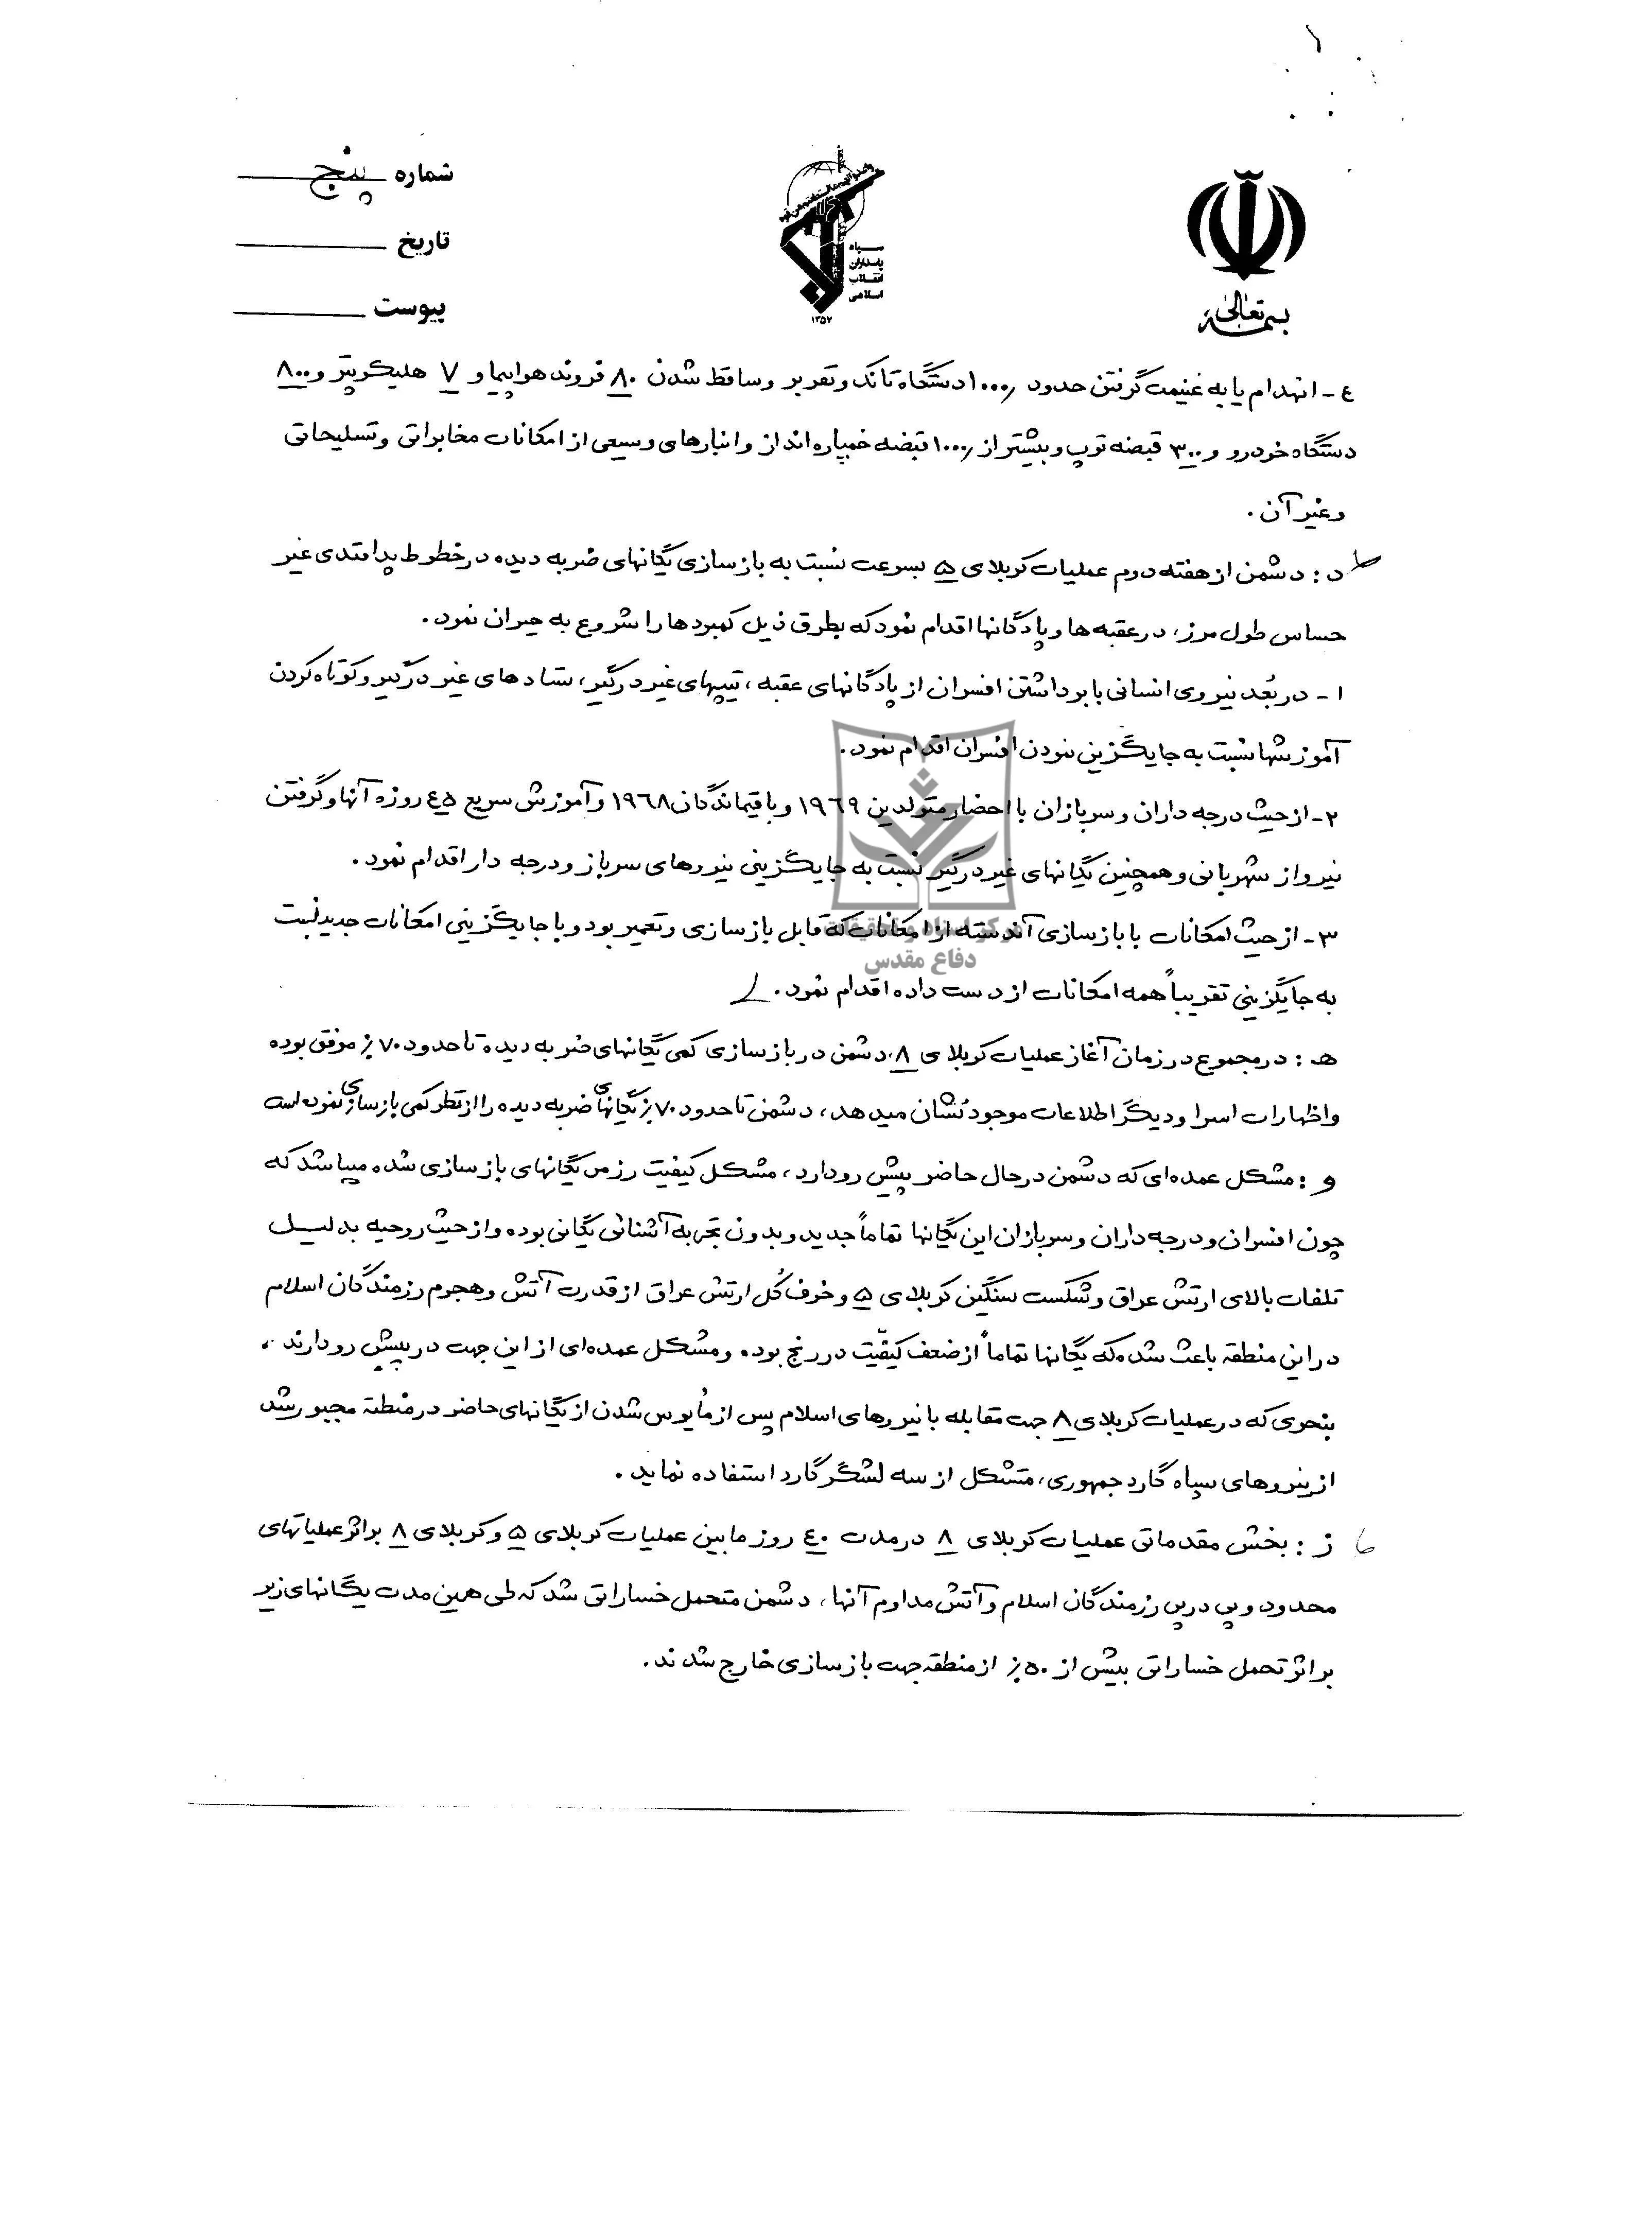 شماره پنج
تاریخ
پیوست
سپاه
پاسداران
انقلاب
اسلامی
۱۳۵۷
بسمه تعالی
٤- انهدام یا به غنیمت گرفتن حدود ۱۰۰۰٫ دستگاه تانک و نفربر و ساقط شدن ۸۰ فروند هواپیما و ۷ هلیکوپتر و ۸۰۰
دستگاه خودرو و ۳۰۰ قبضه توپ و بیشتر از ۱۰۰۰٫ قبضه خمپاره انداز و انبارهای وسیعی از امکانات مخابراتی و تسلیحاتی
و غیر آن .
د : دشمن از هفته دوم عملیات کربلای ۵ بسرعت نسبت به بازسازی یگانهای ضربه دیده در خطوط پدافندی غیر
حساس طول مرز، در عقبه ها و پادگانها اقدام نمود که بطرق ذیل کمبودها را شروع به جبران نمود.
۱- در بُعد نیروی انسانی با برداشتن افسران از پادگانهای عقبه ، تیپهای غیر درگیر، ستادهای غیر درگیر و کوتاه کردن
آموزشها نسبت به جایگزینی نمودن افسران اقدام نمود.
۲- از حیث درجه داران و سربازان با احضار متولدین ۱۹٦۹ و باقیماندگان ۱۹٦۸ و آموزش سریع ٤۵ روزه آنها و گرفتن
نیرو از شهربانی و همچنین یگانهای غیر درگیر نسبت به جایگزینی نیروهای سرباز و درجه دار اقدام نمود .
۳- از حیث امکانات با بازسازی آندسته از امکانات که قابل بازسازی و تعمیر بود و با جایگزینی امکانات جدید نسبت
به جایگزینی تقریباً همه امکانات از دست داده اقدام نمود .
مرکز اسناد و تحقیقات
دفاع مقدس
هـ : در مجموع در زمان آغاز عملیات کربلای ۸، دشمن در بازسازی کمی یگانهای ضربه دیده تا حدود ۷۰٪ موفق بوده
و اظهارات اسرا و دیگر اطلاعات موجود نشان میدهد ، دشمن تا حدود ۷۰٪ یگانهای ضربه دیده را از نظر کمی بازسازی نموده است
و : مشکل عمده ای که دشمن در حال حاضر پیش رو دارد ، مشکل کیفیت رزمی یگانهای بازسازی شده میباشد که
چون افسران و درجه داران و سربازان این یگانها تماماً جدید و بدون تجربه آشنائی یگانی بوده و از حیث روحیه بدلیل
تلفات بالای ارتش عراق و شکست سنگین کربلای ۵ و خوف کُل ارتش عراق از قدرت آتش و هجوم رزمندگان اسلام
در این منطقه باعث شده که یگانها تماماً از ضعف کیفیّت در رنج بوده و مشکل عمده ای از این جهت در پیش رو دارند .
بنحوی که در عملیات کربلای ۸ جهت مقابله با نیروهای اسلام پس از مأیوس شدن از یگانهای حاضر در منطقه مجبور شد
از نیروهای سپاه گارد جمهوری، متشکل از سه لشگر گارد استفاده نماید .
ز : بخش مقدماتی عملیات کربلای ۸ در مدت ٤۰ روز مابین عملیات کربلای ۵ و کربلای ۸ بر اثر عملیاتهای
محدود و پی در پی رزمندگان اسلام و آتش مداوم آنها، دشمن متحمل خساراتی شد که طی همین مدت یگانهای زیر
بر اثر تحمل خساراتی بیش از ۵۰٪ از منطقه جهت بازسازی خارج شدند.